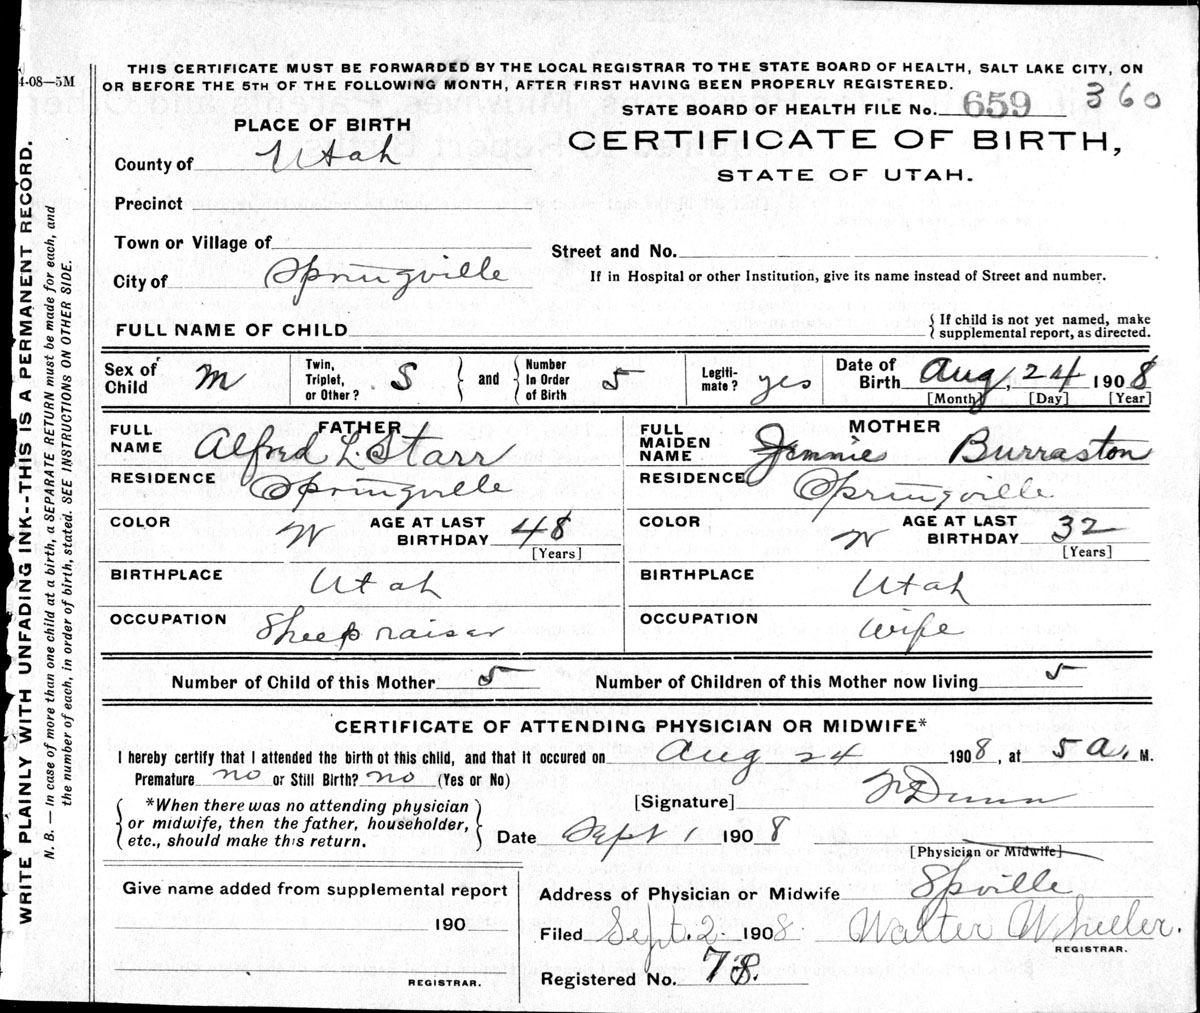 4-08—5M
THIS CERTIFICATE MUST BE FORWARDED BY THE LOCAL REGISTRAR TO THE STATE BOARD OF HEALTH, SALT LAKE CITY, ON
OR BEFORE THE 5TH OF THE FOLLOWING MONTH, AFTER FIRST HAVING BEEN PROPERLY REGISTERED.
STATE BOARD OF HEALTH FILE No. 659 360
PLACE OF BIRTH
CERTIFICATE OF BIRTH,
STATE OF UTAH.
County of Utah
Precinct
Town or Village of
Street and No.
City of Springville
If in Hospital or other Institution, give its name instead of Street and number.
FULL NAME OF CHILD
{ If child is not yet named, make
supplemental report, as directed.
Sex of Child M
Twin, Triplet, or Other? S } and { Number In Order of Birth 5
Legiti-mate? yes
Date of Birth Aug. 24 1908
[Month] [Day] [Year]
FATHER
FULL NAME Alfred L. Starr
RESIDENCE Springville
COLOR W AGE AT LAST BIRTHDAY 48
[Years]
BIRTHPLACE Utah
OCCUPATION Sheep raiser
MOTHER
FULL MAIDEN NAME Jennie Burraston
RESIDENCE Springville
COLOR W AGE AT LAST BIRTHDAY 32
[Years]
BIRTHPLACE Utah
OCCUPATION Wife
Number of Child of this Mother 5 Number of Children of this Mother now living 5
CERTIFICATE OF ATTENDING PHYSICIAN OR MIDWIFE*
I hereby certify that I attended the birth of this child, and that it occured on Aug 24 1908, at 5 a. M.
Premature no or Still Birth? no (Yes or No)
{ *When there was no attending physician
or midwife, then the father, householder,
etc., should make this return. }
[Signature] Dunn
Date Sept 1 1908
[Physician or Midwife]
Give name added from supplemental report
190
REGISTRAR.
Address of Physician or Midwife Spville
Filed Sept. 2. 1908. Walter Wheeler.
REGISTRAR.
Registered No. 78.
WRITE PLAINLY WITH UNFADING INK--THIS IS A PERMANENT RECORD.
N. B. — In case of more than one child at a birth, a SEPARATE RETURN must be made for each, and
the number of each, in order of birth, stated. SEE INSTRUCTIONS ON OTHER SIDE.